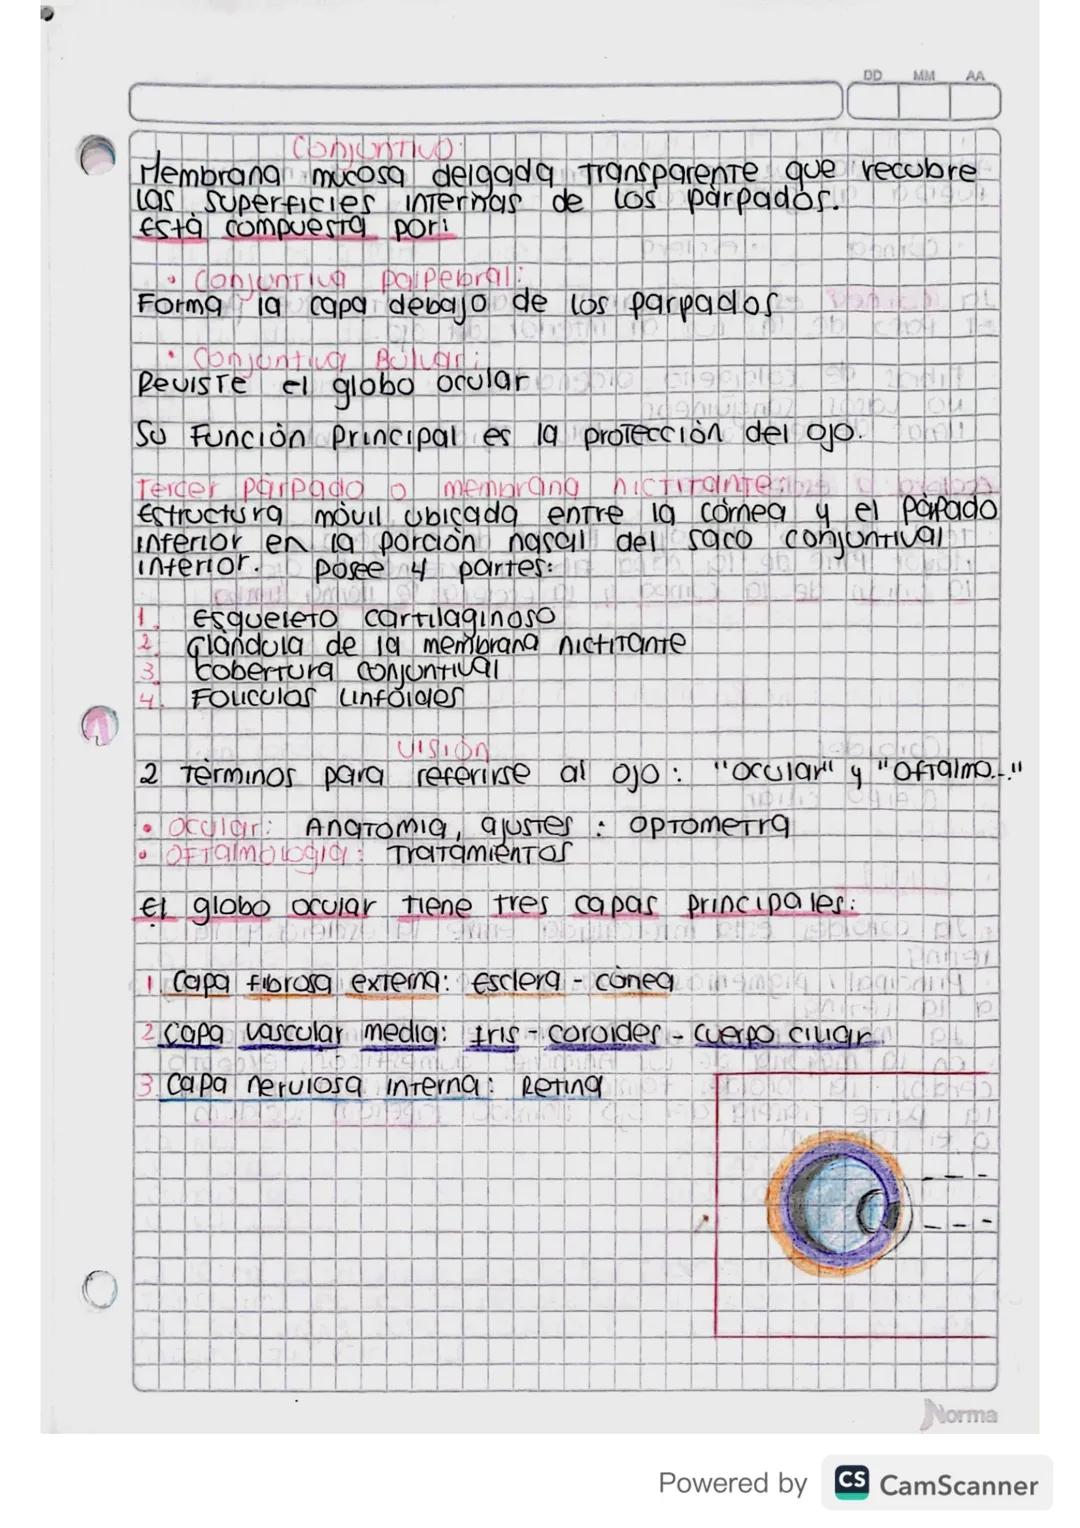 DD MM AA
Conjuntiva:
Membrana mucosa delgada transparente que recubre
las superficies internas de los párpados.
Está compuesta por:
• Conjuntiva palpebral:
Forma la capa debajo de los parpados
• Conjuntiva Bulvar:
Reviste el globo ocular
Su Función Principal es la protección del ojo.
Tercer párpado o membrana nictitante:
Estructura móvil ubicada entre la córnea y el párpado
inferior en la porción nasal del saco conjuntival
inferior. Posee 4 partes:
1. Esqueleto cartilaginoso
2. Glándula de la membrana nictitante
3. Cobertura conjuntival
4. Folículos linfoides
Visión
2 términos para referirse al ojo: "Ocular" y "Oftalmo..."
• Ocular: Anatomia, ajustes : optometra
• Oftalmologia: Tratamientos
El globo ocular tiene tres capas principales:
1 Capa fibrosa externa: Esclera - cónea
2. Capa vascular media: Iris - coroides - cuerpo ciliar
3. Capa nerviosa interna: Retina
Norma
Powered by CS CamScanner